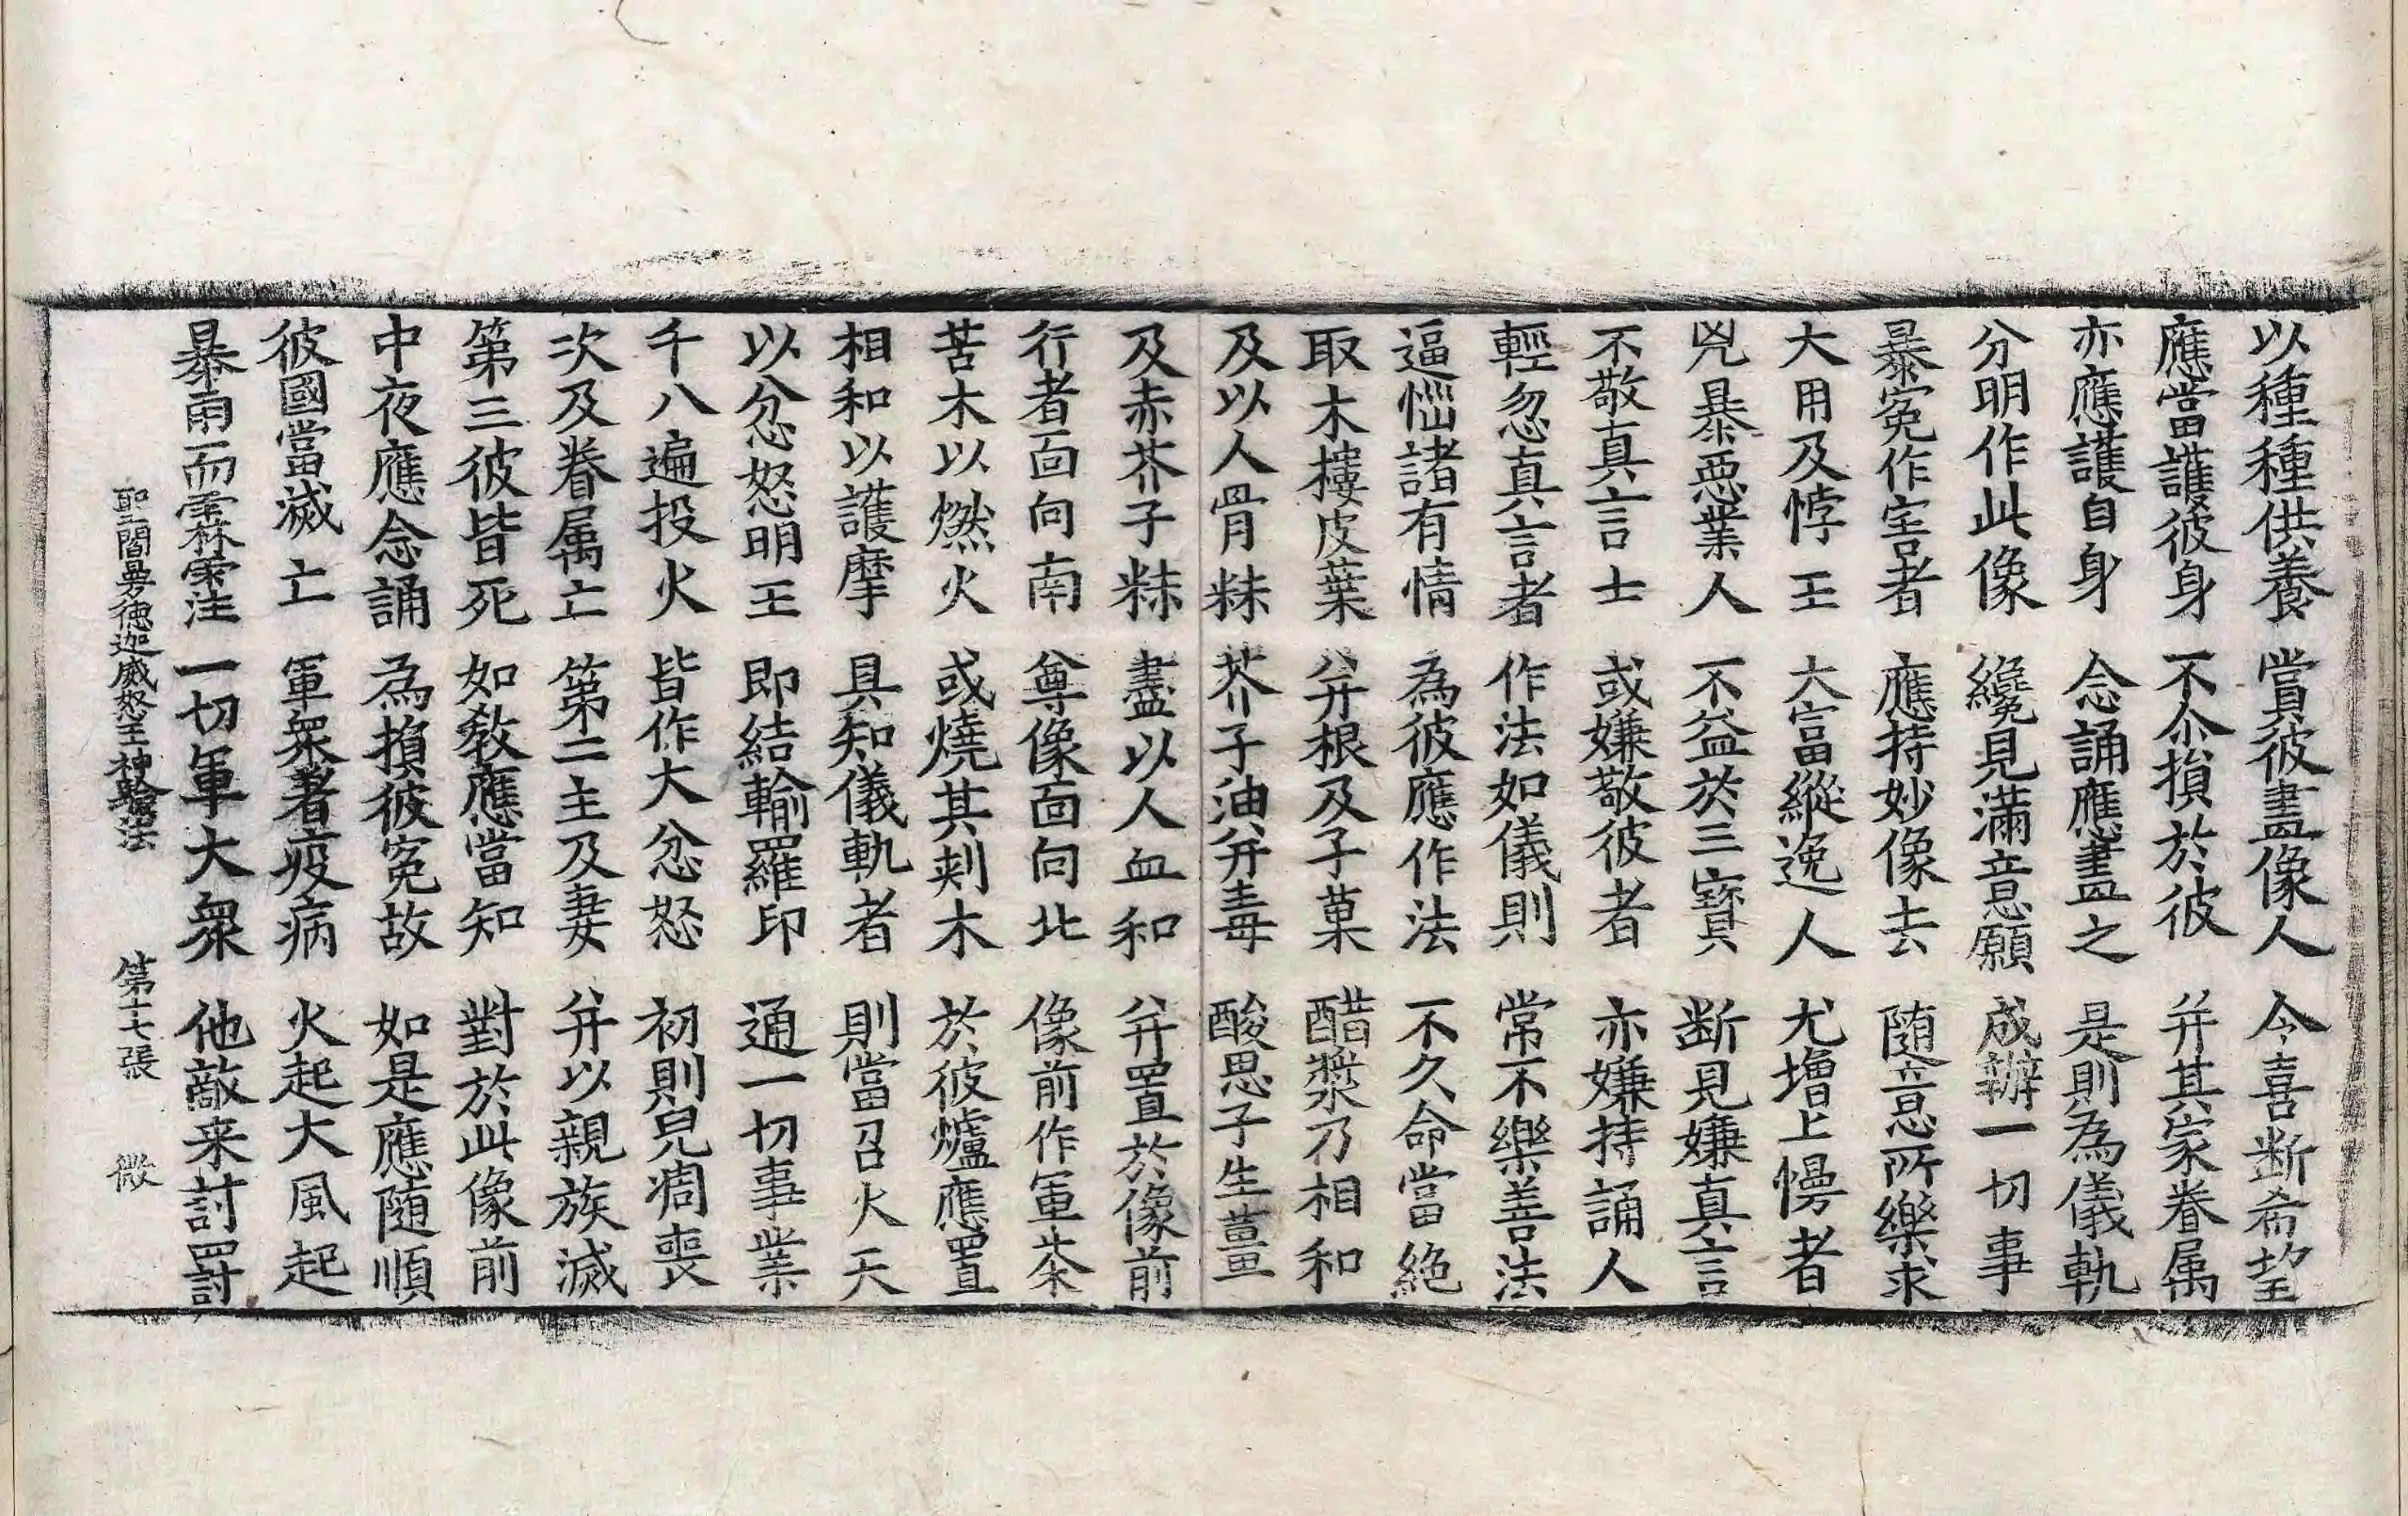 以種種供養　賞彼畫像人　令喜斷希望
應當護彼身　不尒損於彼　幷其家眷属
亦應護自身　念誦應畫之　是則為儀軌
分明作此像　纔見滿意願　成辦一切事
暴寃作害者　應持妙像去　隨意所樂求
大用及悖王　大富縱逸人　尤增上慢者
兇暴惡業人　不益於三寶　斷見嫌真言
不敬真言士　或嫌敬彼者　亦嫌持誦人
輕忽真言者　作法如儀則　常不樂善法
逼惱諸有情　為彼應作法　不久命當絕
取木樓皮葉　幷根及子菓　醋漿乃相和
及以人骨粖　芥子油幷毒　酸思子生薑
及赤芥子粖　盡以人血和　幷置於像前
行者面向南　尊像面向北　像前作軍茶
苦木以燃火　或燒其刺木　於彼爐應置
相和以護摩　具知儀軌者　則當召火天
以忿怒明王　即結輸羅印　通一切事業
千八遍投火　皆作大忿怒　初則兒凋喪
次及眷属亡　第二主及妻　幷以親族滅
第三彼皆死　如教應當知　對於此像前
中夜應念誦　為損彼寃故　如是應隨順
彼國當滅亡　軍衆著疫病　火起大風起
暴雨而霖注　一切軍大衆　他敵来討罸
聖閻曼德迦威怒王神驗法　第十七張　微